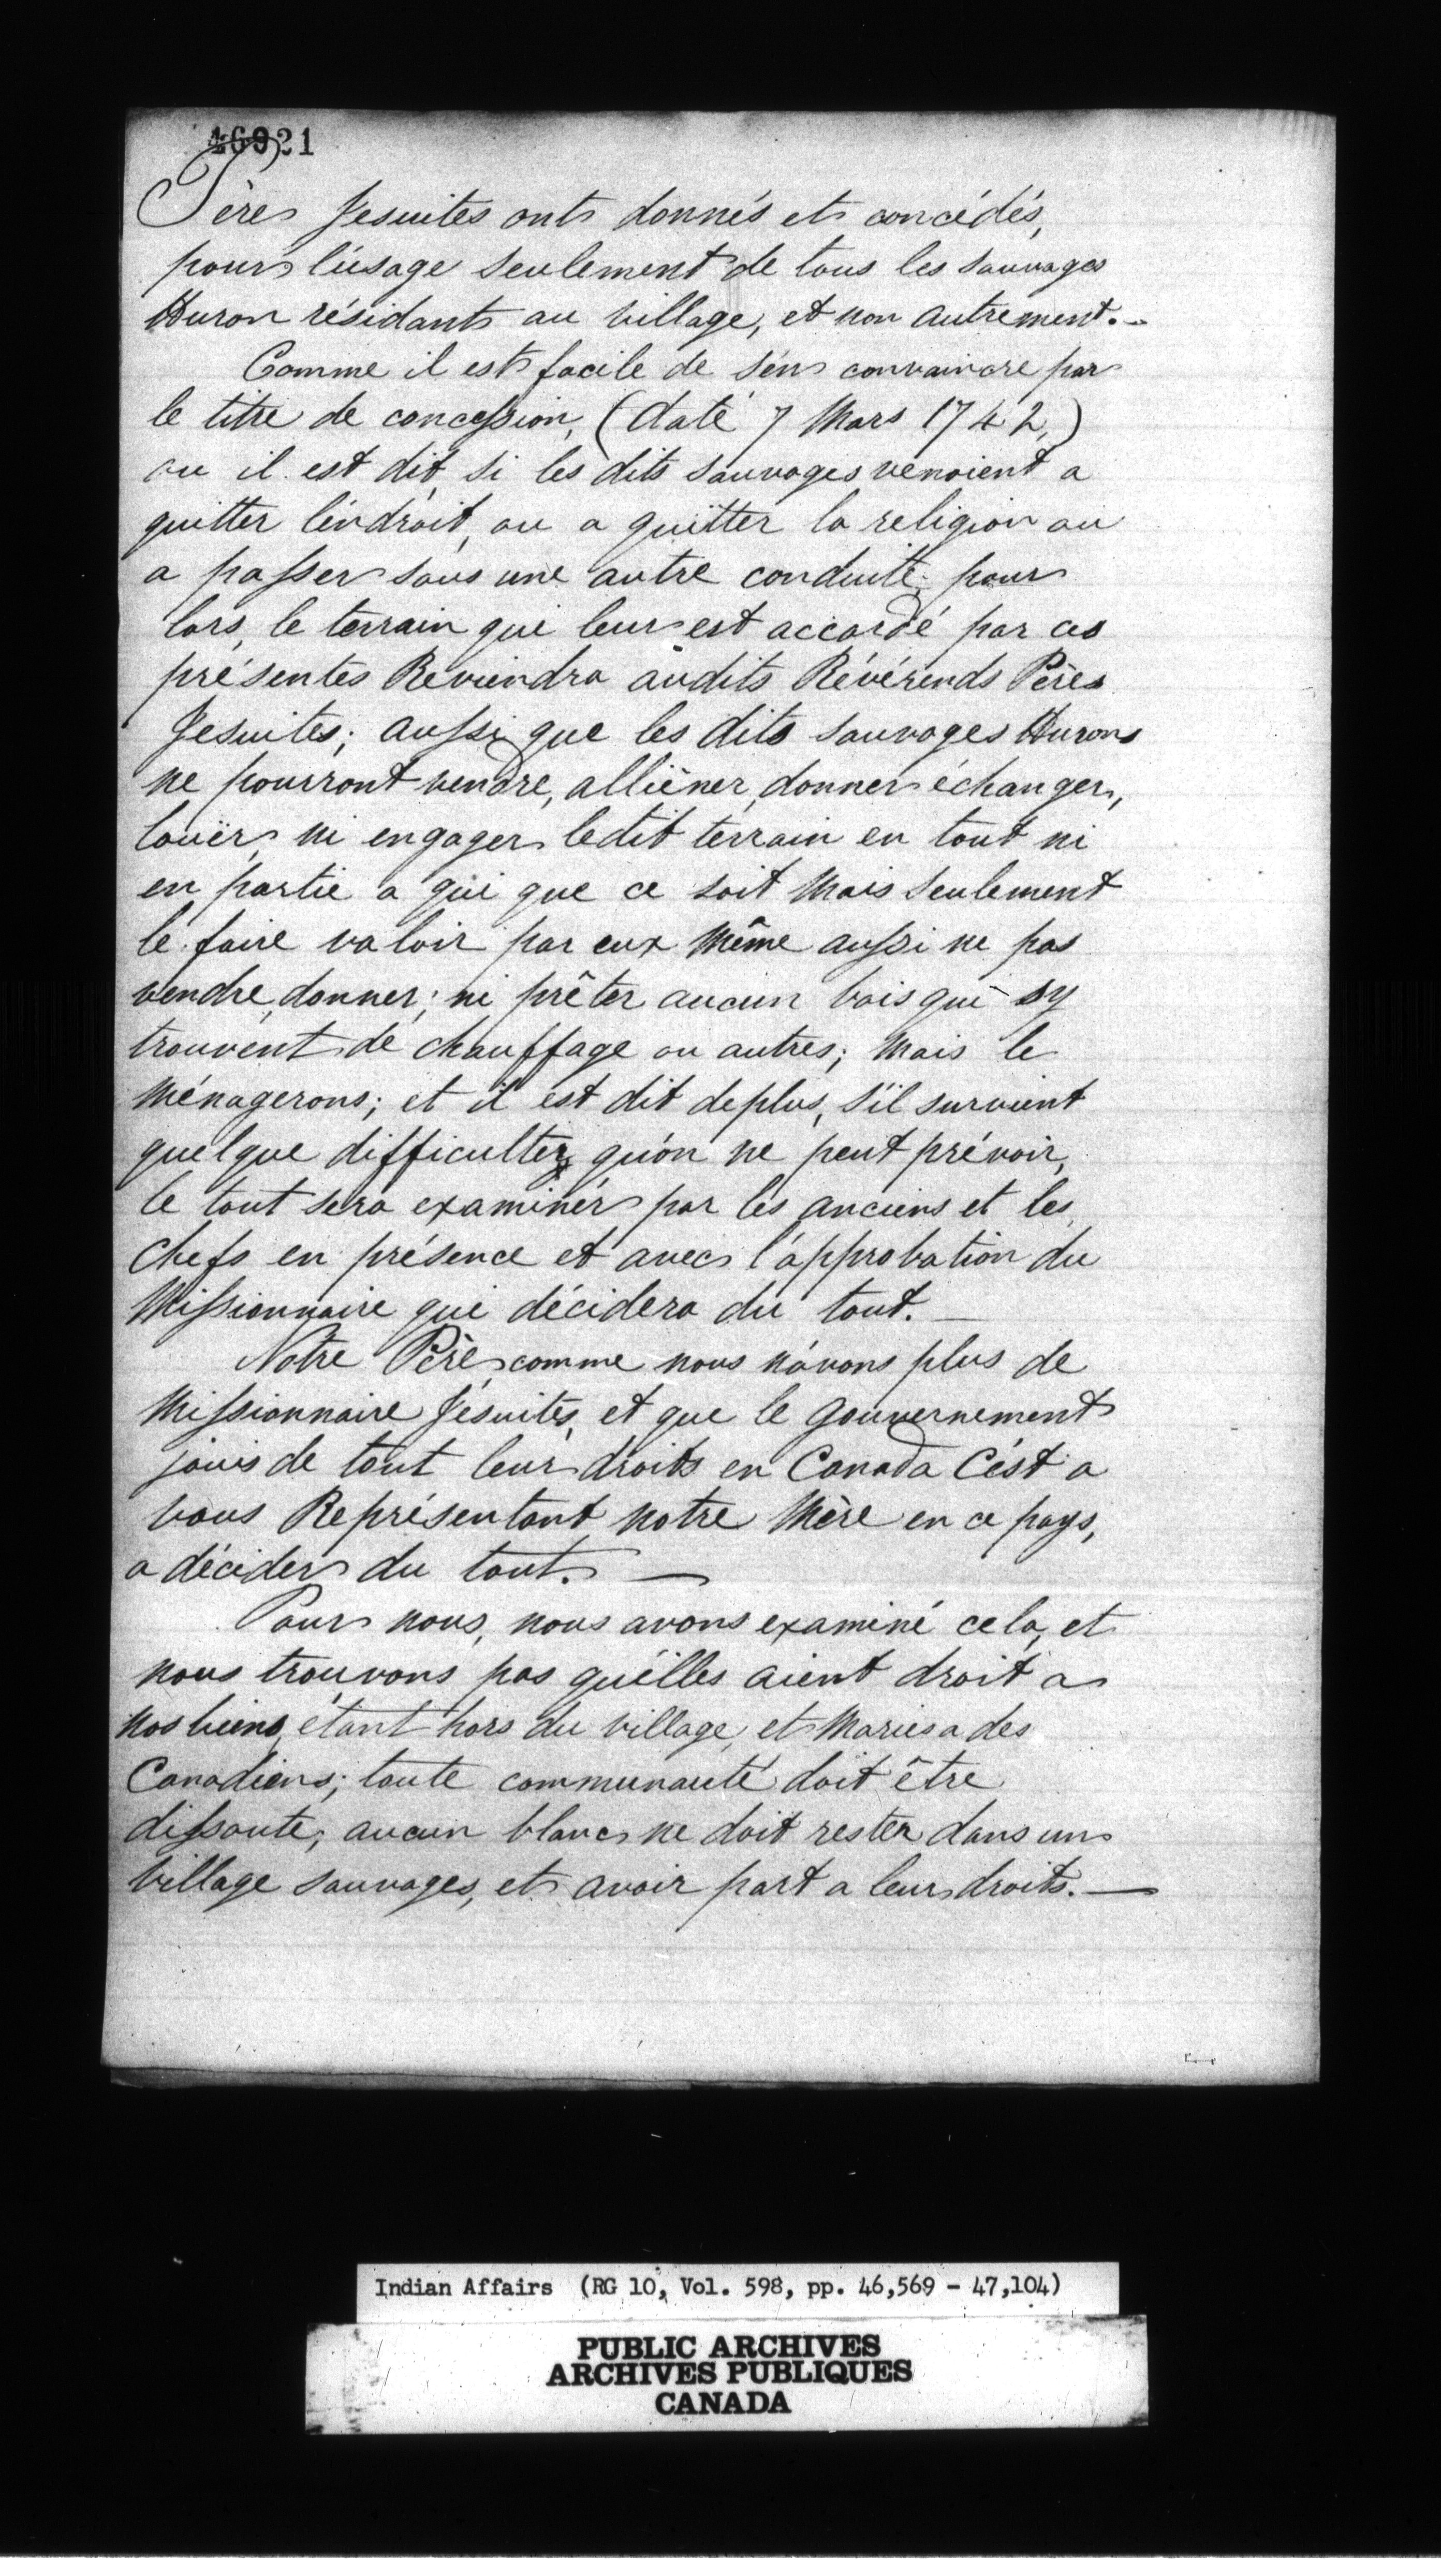 46921
Pères Jesuites onts donnés et concédés,
pour l'úsage seulement de tous les sauvages
Huron résidants au village, et non autrement.-
Comme il est facile de s'én convaincre par
le titre de concession, (daté 7 Mars 1742,)
ou il est dit, si les dits sauvages venoient a
quitter l'éndroit, ou a quitter la religion ou
a passer sous une autre conduite; pour
lors, le terrain qui leur est accordé par ces
présentes Reviendra audits Révérends Pères
Jesuites; aussi que les dits sauvages Hurons
ne pourront vendre, alliéner, donner échanger,
louër, ni engager ledit terrain en tout ni
en partie a qui que ce soit Mais seulement
le faire valoir par eux Même aussi ne pas
vendre, donner; ni prêter aucun bois qui sy
trouvent de chauffage ou autres; Mais le
Ménagerons; et il est dit deplus, s'íl survient
quelque difficultez qu'ón ne peut prévoir,
le tout sera examinér par les anciens et les
Chefs en présence et avec l'ápprobation du
Missionnaire qui décidera du tout. —
Notre Père, comme nous n'ávons plus de
Missionnaire Jésuites, et que le gouvernement
jouis de tout leur droits en Canada C'ést a
vous Représentant, notre Mère en ce pays,
a décider du tout. —
Pour nous, nous avons examiné cela, et
nous trouvons pas qu'élles aient droit a
nos biens, étant hors du village, et Maries a des
Canadiens; toute communauté doit être
dissoute; aucun blanc ne doit rester dans un
village sauvages, et avoir part a leur droits. —
Indian Affairs (RG 10, Vol. 598, pp. 46,569 - 47,104)
PUBLIC ARCHIVES
ARCHIVES PUBLIQUES
CANADA